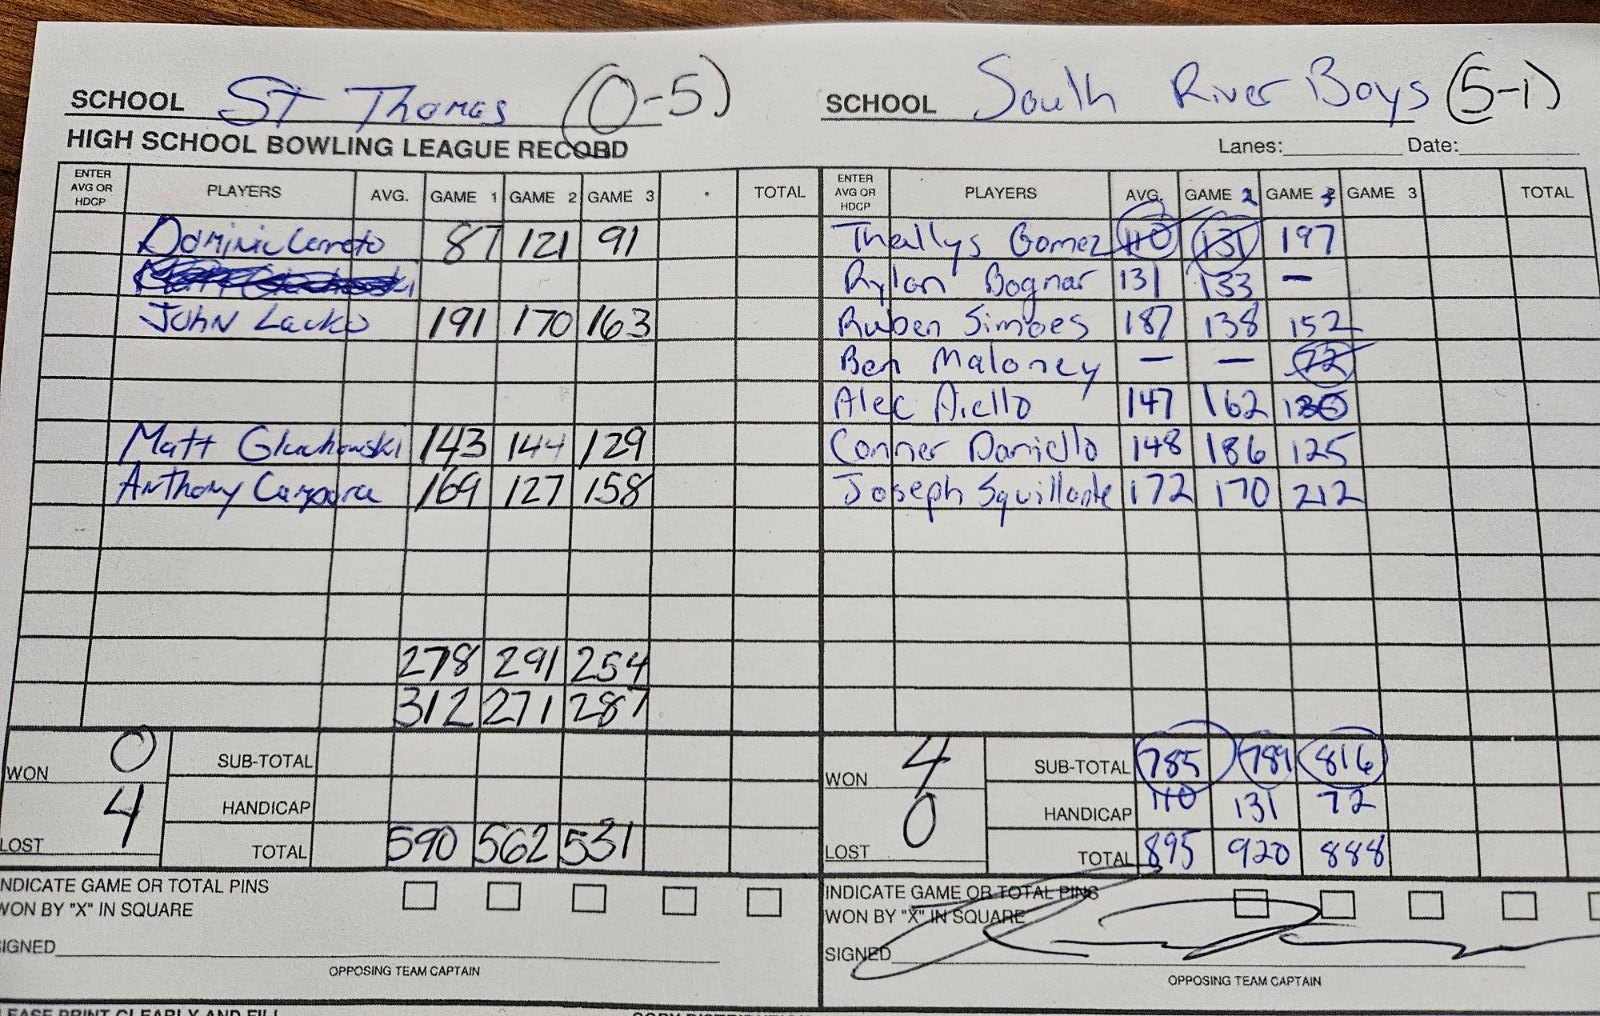 SCHOOL ST Thomas (0-5)
HIGH SCHOOL BOWLING LEAGUE RECORD
ENTER AVG OR HDCP PLAYERS AVG. GAME 1 GAME 2 GAME 3 TOTAL
Dominic Cerreto 87 121 91
John Lacko 191 170 163
Matt Gluchowski 143 144 129
Anthony Campora 169 127 158
278 291 254
312 271 287
WON 0 SUB-TOTAL
HANDICAP
LOST 4 TOTAL 590 562 531
INDICATE GAME OR TOTAL PINS
WON BY "X" IN SQUARE
SIGNED
OPPOSING TEAM CAPTAIN
SCHOOL South River Boys (5-1)
Lanes: Date:
ENTER AVG OR HDCP PLAYERS AVG. GAME 2 GAME 3 GAME 3 TOTAL
Thallys Gomez 110 131 197
Rylan Bognar 131 133 —
Ruben Simoes 187 138 152
Ben Maloney — — 72
Alec Aiello 147 162
Conner Daniello 148 186 125
Joseph Squillante 172 170 212
WON 4 SUB-TOTAL 785 789 816
HANDICAP 110 131 72
LOST 0 TOTAL 895 920 888
INDICATE GAME OR TOTAL PINS
WON BY "X" IN SQUARE
SIGNED
OPPOSING TEAM CAPTAIN